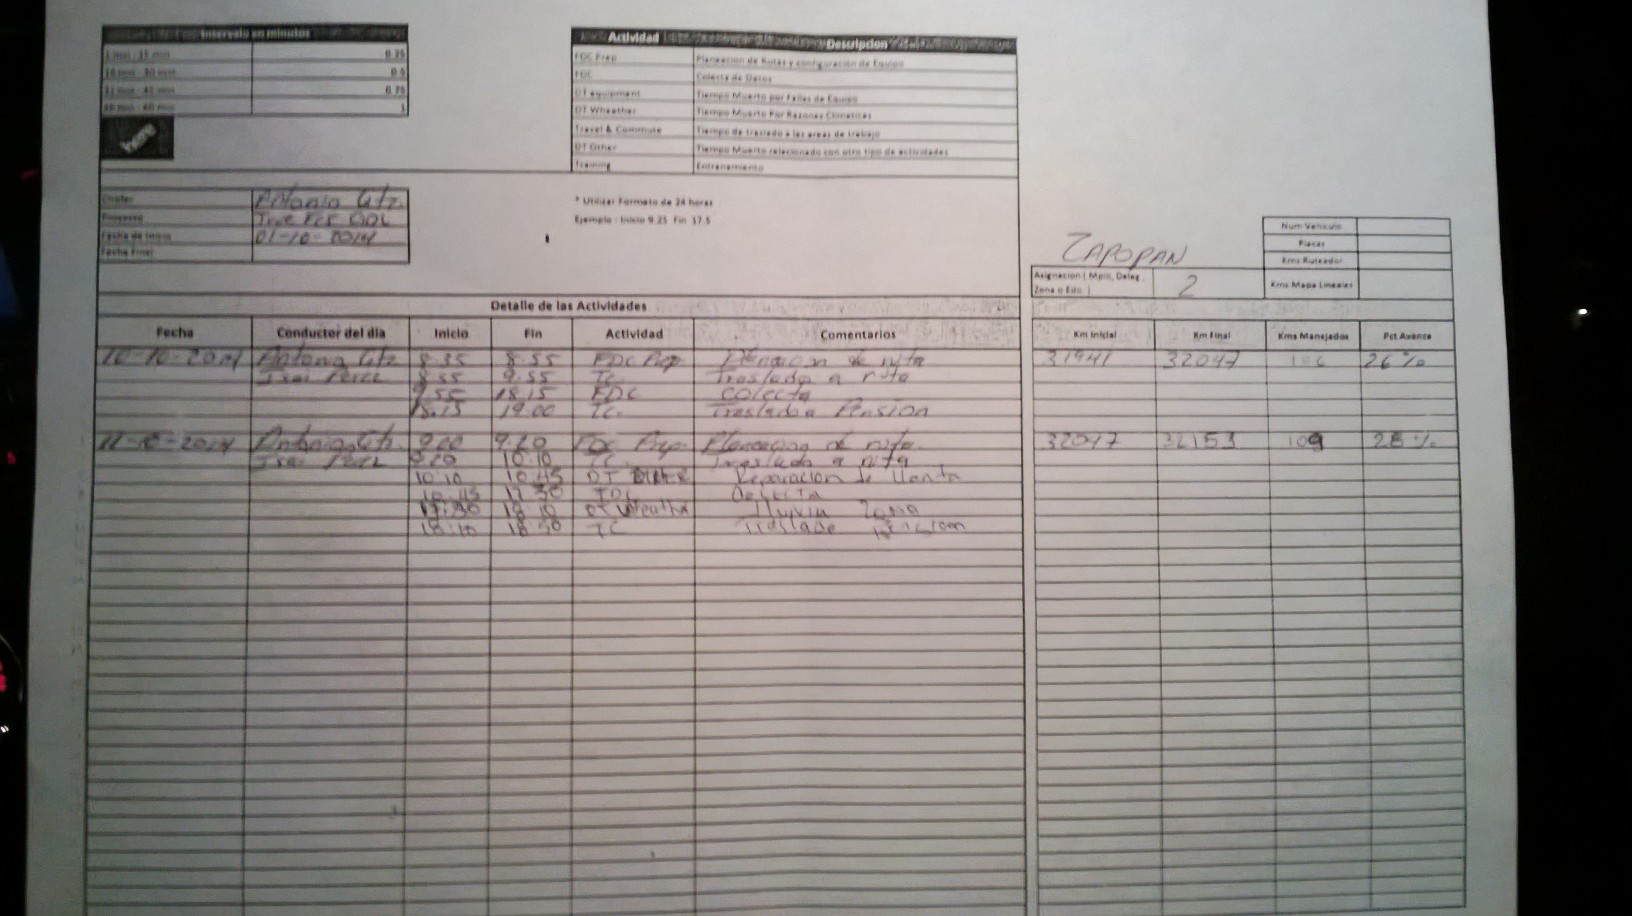 Intervalo en minutos
1 min - 15 min 0.25
16 min - 30 min 0.5
31 min - 45 min 0.75
46 min - 60 min 1
here
Actividad Descripcion
FDC Prep Planeacion de Rutas y configuración de Equipo
FDC Colecta de Datos
DT equipment Tiempo Muerto por Fallas de Equipo
DT Wheather Tiempo Muerto Por Razones Climaticas
Travel & Commute Tiempo de traslado a las areas de trabajo
DT Other Tiempo Muerto relacionado con otro tipo de actividades
Training Entrenamiento
Chofer Antonio Gtz.
Proyecto True GDL
Fecha de Inicio 01-10-2014
Fecha Final
* Utilizar Formato de 24 horas
Ejemplo : Inicio 9.25 Fin 17.5
ZAPOPAN
Asignacion ( Mpio, Deleg, Zona o Edo. ) 2
Num Vehiculo
Placas
Kms Ruteador
Kms Mapa Lineales
Detalle de las Actividades
Fecha Conductor del dia Inicio Fin Actividad Comentarios Km Inicial Km Final Kms Manejados Pct Avance
10-10-2014 Antonio Gtz 8:35 8:55 FDC Prep Planeacion de ruta 31941 32047 106 26%
Isai Perez 8:55 9:55 TC Traslado a ruta
9:55 18:15 FDC colecta
18:15 19:00 TC. Traslado a Pension
11-10-2014 Antonio Gtz. 9:00 9:20 FDC Prep Planeacion de ruta. 32047 32153 109 28%
Isai Perez 9:20 10:10 TC Traslado a ruta
10:10 10:45 DT Reparacion de llanta
10:45 17:30
17:30 18:10 DT Weather lluvia Zona
18:10 18:50 TC Traslado Pension